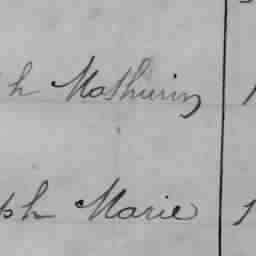 h Mathurin 1
ph Marie 1